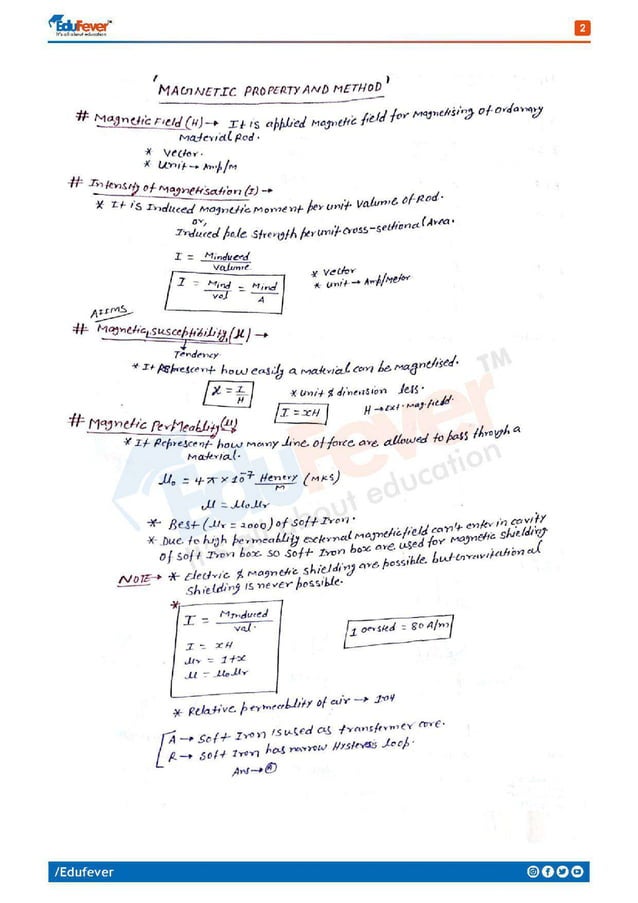 EduFever™
It's all about education
2
'MAGNETIC PROPERTY AND METHOD'
# Magnetic Field (H) → It is applied magnetic field for magnetising of ordanary
material Rod.
* Vector.
* Unit → Amp/M
# Intensity of Magnetisation (I) →
* It is Induced Magnetic Moment per unit Valume of Rod.
or,
Induced pole strength per unit cross-sectional Area.
I = Minduced / Valume
I = Mind / Vol = Mind / A
* Vector
* unit → Amp/Meter
AIIMS
# Magnetic susceptibility (χ) →
Tendency
* It Represent how easily a material can be magnetised.
χ = I / H
* unit & dinension less.
I = xH
H → Ext. mag. field.
# Magnetic Permeablity (μ)
* It Represent how many line of force are allowed to pass through a
material.
μ₀ = 4π × 10⁻⁷ Henery / M (MKS)
μ = μ₀μr
* Best (μr = 2000) of soft Iron.
* Due to high permeablity external magnetic field can't enter in cavity
of soft Iron box so soft Iron box are used for magnetic shielding
NOTE → * Electric & Magnetic shielding are possible but Gravitational
shielding is never possible.
*
I = Minduced / Val.
I = xH
μr = 1+x
μ = μ₀μr
1 oersted = 80 A/m
* Relative permeablity of air →
A → Soft Iron is used as transformer core.
R → Soft Iron has narrow Hysteresis loop.
Ans → A
EduFever™
It's all about education
/Edufever